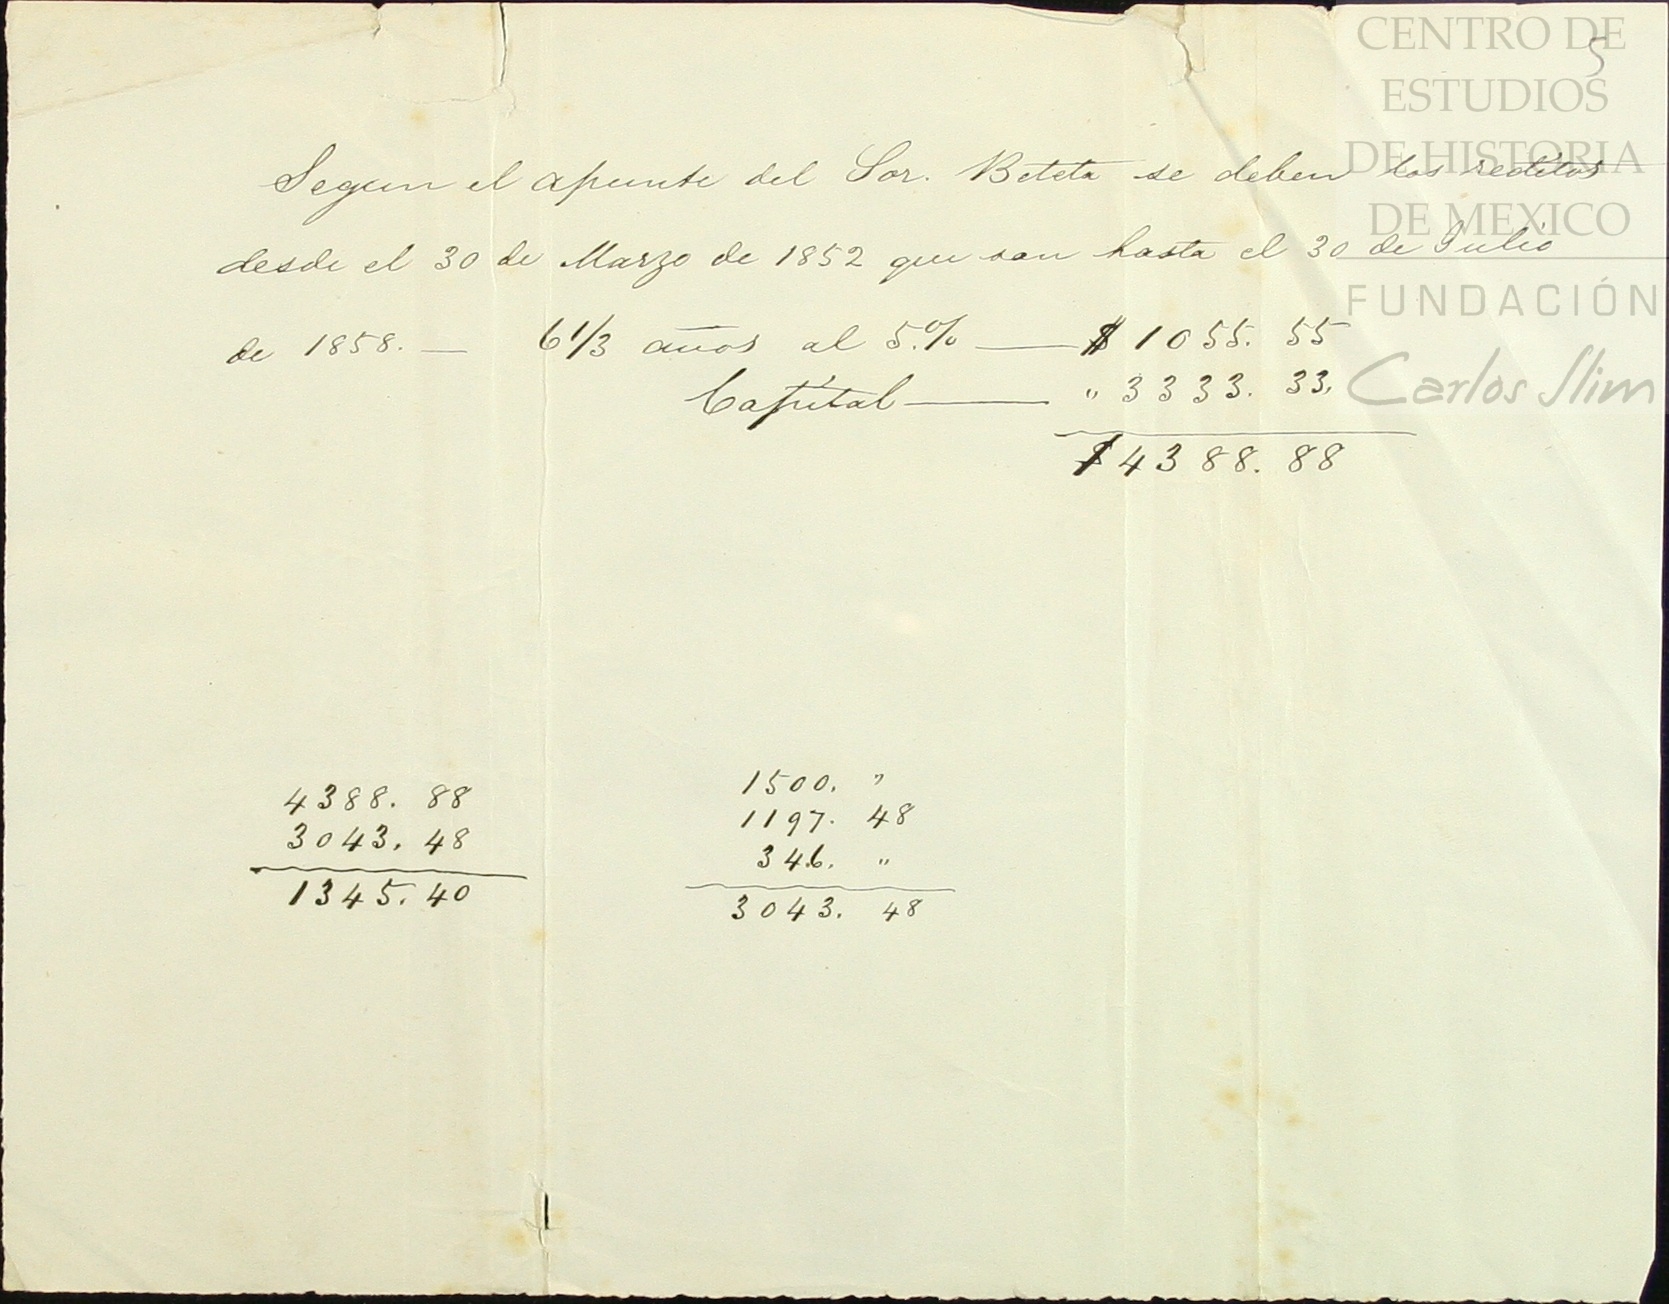 CENTRO DE
ESTUDIOS
DE HISTORIA
DE MEXICO
FUNDACIÓN
Carlos Slim
5
Segun el apunte del Sor. Beteta se deben los reditos
desde el 30 de Marzo de 1852 que son hasta el 30 de Julio
de 1858. — 6 1/3 años al 5.% — $ 1055. 55
Capital — " 3333. 33.
$ 4388. 88
4388. 88
3043. 48
1345. 40
1500. "
1197. 48
346. "
3043. 48